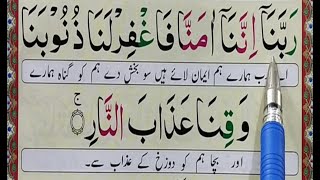 رَبَّنَآ اِنَّنَآ اٰمَنَّا فَاغْفِرْ لَنَا ذُنُوْبَنَا
اے رب ہمارے ہم ایمان لائے ہیں سو بخش دے ہم کو گناہ ہمارے
وَقِنَا عَذَابَ النَّارِ ۚ
اور بچا ہم کو دوزخ کے عذاب سے۔